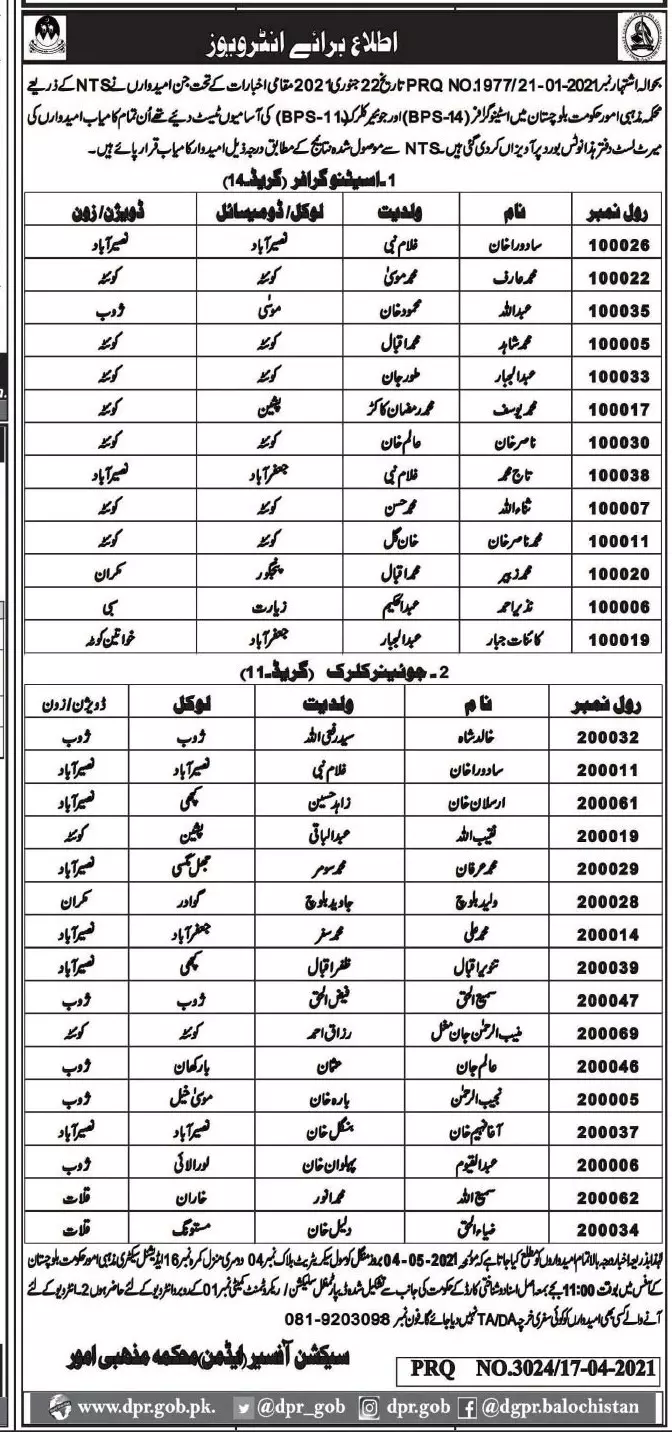 اطلاع برائے انٹرویوز
بحوالہ اشتہار نمبر PRQ NO.1977/21-01-2021 تاریخ 22 جنوری 2021 مقامی اخبارات کے تحت جن امیدواران نے NTS کے ذریعے
محکمہ مذہبی امور حکومت بلوچستان میں اسٹینوگرافر (BPS-14) اور جونیئر کلرک (BPS-11) کی آسامیوں ٹیسٹ دیئے تھے اُن تمام کامیاب امیدواران کی
میرٹ لسٹ دفتر ہذا نوٹس بورڈ پر آویزاں کر دی گئی ہیں۔ NTS سے موصول شدہ نتائج کے مطابق درجہ ذیل امیدوار کامیاب قرار پائے ہیں۔
1۔ اسیٹنوگرافر (گریڈ۔14)
رول نمبر نام ولدیت لوکل/ڈومیسائل ڈویژن/زون
100026 سادورا خان غلام نبی نصیرآباد نصیرآباد
100022 محمد عارف محمد موسیٰ کوئٹہ کوئٹہ
100035 عبداللہ محمود خان موسیٰ ژوب
100005 محمد شاہد محمد اقبال کوئٹہ کوئٹہ
100033 عبدالجبار طور جان کوئٹہ کوئٹہ
100017 محمد یوسف محمد رمضان کاکڑ پشین کوئٹہ
100030 ناصر خان عالم خان کوئٹہ کوئٹہ
100038 تاج محمد غلام نبی جعفرآباد نصیرآباد
100007 ثناء اللہ محمد حسن کوئٹہ کوئٹہ
100011 محمد ناصر خان خان گل کوئٹہ کوئٹہ
100020 محمد زبیر محمد اقبال پنجگور مکران
100006 نذیر احمد عبدالحکیم زیارت سبی
100019 کائنات جبار عبدالجبار جعفرآباد خواتین کوٹہ
2۔ جونیئر کلرک (گریڈ۔11)
رول نمبر نام ولدیت لوکل ڈویژن/زون
200032 خالد شاہ سید رفیع اللہ ژوب ژوب
200011 سادورا خان غلام نبی نصیرآباد نصیرآباد
200061 ارسلان خان زاہد حسین کچھی نصیرآباد
200019 نقیب اللہ عبدالباقی پشین کوئٹہ
200029 محمد عرفان محمد سومر جھل مگسی نصیرآباد
200028 ولید بلوچ جاوید بلوچ گوادر مکران
200014 محمد علی محمد سفر جعفرآباد نصیرآباد
200039 تنویر اقبال ظفر اقبال کچھی نصیرآباد
200047 سمیع الحق فیض الحق ژوب ژوب
200069 منیب الرحمٰن جان مغل رزاق احمد کوئٹہ کوئٹہ
200046 عالم جان عثمان بارکھان ژوب
200005 نجیب الرحمٰن بارہ خان موسیٰ خیل ژوب
200037 آغا فہیم خان بنگل خان نصیرآباد نصیرآباد
200006 عبدالقیوم پہلوان خان لورالائی ژوب
200062 سمیع اللہ محمد انور خاران قلات
200034 ضیاء الحق دلیل خان مستونگ قلات
لہٰذا بذریعہ اخبار درجہ بالا تمام امیدواروں کو مطلع کیا جاتا ہے کہ مورخہ 04-05-2021 بروز منگل کو سول سیکریٹریٹ بلاک نمبر 04 دوسری منزل کمرہ نمبر 16 ایڈیشنل سیکرٹری مذہبی امور حکومت بلوچستان
کے آفس میں بوقت 11:00 بجے بمعہ اصل اسناد و شناختی کارڈ کے حکومت کی جانب سے تشکیل شدہ ڈیپارٹمنٹل سلیکشن / ریکروٹمنٹ کمیٹی نمبر 01 کے روبرو انٹرویو کے لئے حاضر ہوں 2۔ انٹرویو کے لئے
آنے والے کسی بھی امیدواران کو کوئی سفری خرچہ TA/DA نہیں دیا جائے گا۔ فون نمبر 081-9203098
سیکشن آفسیر (ایڈمن) محکمہ مذھبی امور
PRQ NO.3024/17-04-2021
www.dpr.gob.pk. @dpr_gob dpr.gob @dgpr.balochistan